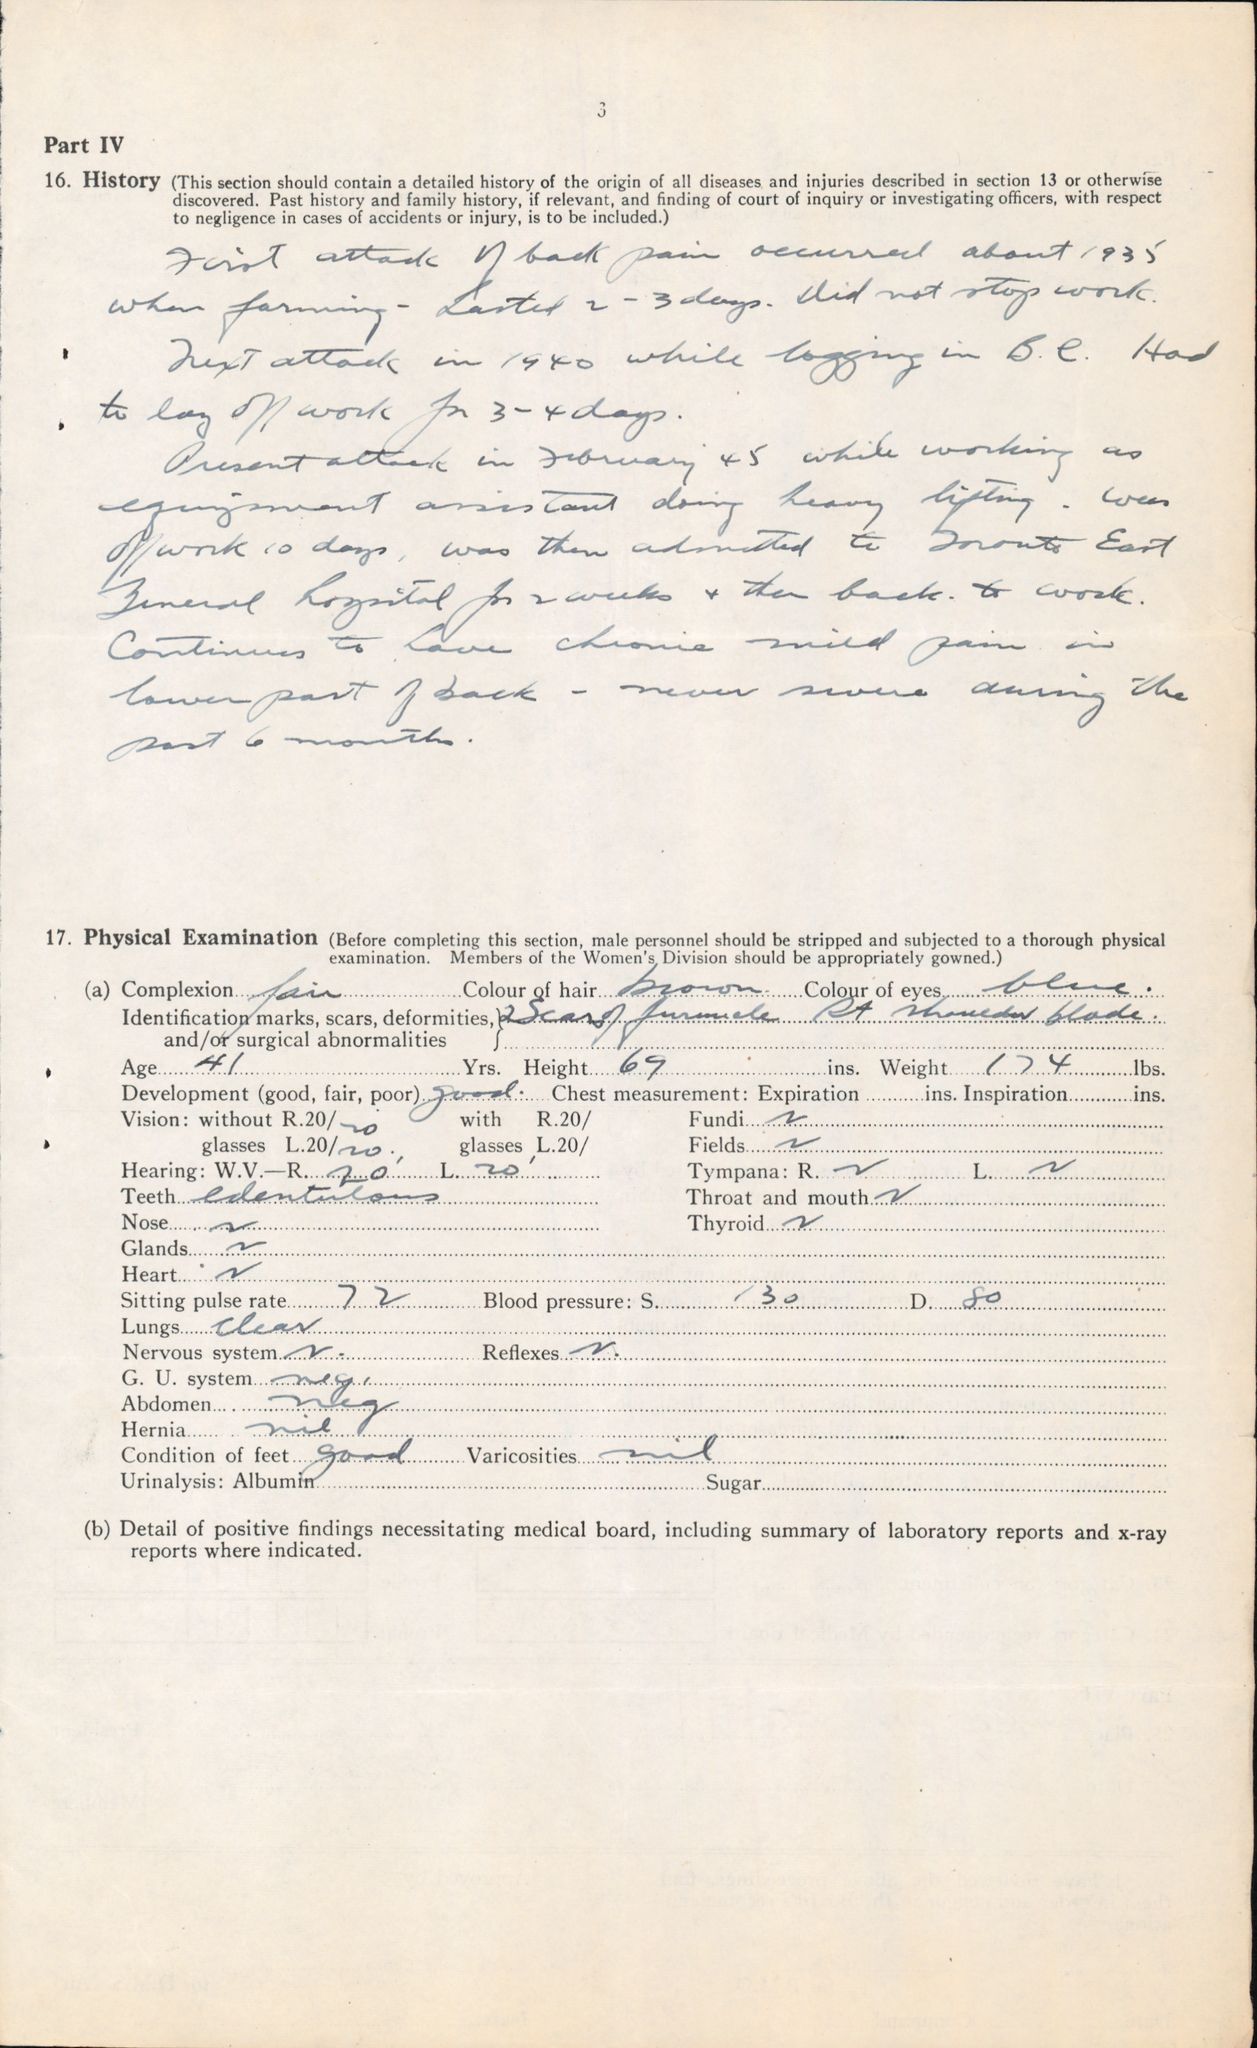 3
Part IV
16. History (This section should contain a detailed history of the origin of all diseases and injuries described in section 13 or otherwise
discovered. Past history and family history, if relevant, and finding of court of inquiry or investigating officers, with respect
to negligence in cases of accidents or injury, is to be included.)
First attack of back pain occurred about 1935
when farming - Lasted 2-3 days. Did not stop work.
Next attack in 1940 while logging in B.C. Had
to lay off work for 3-4 days.
Present attack in February 45 while working as
equipment assistant doing heavy lifting. Was
off work 10 days, was then admitted to Toronto East
General hospital for 2 weeks & then back to work.
Continues to have chronic mild pain in
lower part of back - never severe during the
past 6 months.
17. Physical Examination (Before completing this section, male personnel should be stripped and subjected to a thorough physical
examination. Members of the Women's Division should be appropriately gowned.)
(a) Complexion fair Colour of hair brown. Colour of eyes blue.
Identification marks, scars, deformities, } 2 Scars of furuncle Rt shoulder blade.
and/or surgical abnormalities
Age 41 Yrs. Height 69 ins. Weight 174 lbs.
Development (good, fair, poor) good. Chest measurement: Expiration ins. Inspiration ins.
Vision: without R.20/20 with R.20/ Fundi N
glasses L.20/20. glasses L.20/ Fields N
Hearing: W.V.—R. 20' L. 20' Tympana: R. N L. N
Teeth edentulous Throat and mouth N
Nose N Thyroid N
Glands N
Heart N
Sitting pulse rate 72 Blood pressure: S. 130 D. 80
Lungs clear
Nervous system N. Reflexes N.
G. U. system neg.
Abdomen neg
Hernia nil
Condition of feet good Varicosities nil
Urinalysis: Albumin Sugar
(b) Detail of positive findings necessitating medical board, including summary of laboratory reports and x-ray
reports where indicated.